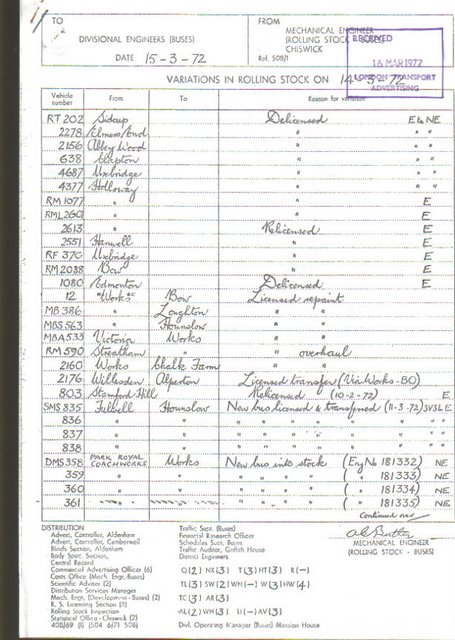 TO
DIVISIONAL ENGINEERS (BUSES)
DATE 15-3-72
FROM
MECHANICAL ENGINEER
(ROLLING STOCK - BUSES)
CHISWICK
Ref. 508/1
RECEIVED
16 MAR 1972
LONDON TRANSPORT
ADVERTISING
VARIATIONS IN ROLLING STOCK ON 14-3-72
Vehicle number From To Reason for variation
RT 202 Sidcup Delicensed E to NE
2278 Elmers End " " "
2156 Abbey Wood " " "
638 Clapton " " "
4687 Uxbridge " " "
4377 Holloway " " "
RM 1077 " " E
RML 2601 " " E
2613 " Relicensed E
2551 Hanwell " E
RF 370 Uxbridge " E
RM 2088 Bow " E
1080 Edmonton Delicensed E
12 "Works" Bow Licensed repaint
MB 386 " Loughton " "
MBS 563 " Hounslow " "
MBA 533 Victoria Works " "
RM 590 Streatham " " overhaul
2160 Works Chalk Farm " "
2176 Willesden Alperton Licensed transfer (Via Works-BO)
803 Stamford Hill Relicensed (10-2-72) E
SMS 835 Fulwell Hounslow New bus licensed & transferred (11-3-72) SVSL E
836 " " " " " " " " "
837 " " " " " " " " "
838 " " " " " " " " "
DMS 358 PARK ROYAL COACHWORKS Works New bus into stock (Eng No 181332) NE
359 " " " " " " ( " 181333) NE
360 " " " " " " ( " 181334) NE
361 " " " " " " ( " 181335) NE
Continued over
DISTRIBUTION
Advert. Controller, Aldenham
Advert. Controller, Camberwell
Blinds Section, Aldenham
Body Spec. Section
Central Record
Commercial Advertising Officer (6)
Costs Office (Mech. Engr. Buses)
Scientific Adviser (2)
Distribution Services Manager
Mech. Engr. (Development - Buses) (2)
R. S. Licensing Section (3)
Rolling Stock Inspection
Statistical Office - Chiswick (2)
Traffic Supt. (Buses)
Financial Research Officer
Schedules Supt. Buses
Traffic Auditor, Griffith House
District Engineers
Q(2) NX(3) T(3) HT(3) R(-)
TL(3) SW(2) WH(-) W(3) HW(4)
TC(3) AR(3)
AL(2) WH(3) U(-) AV(3)
Divl. Operating Manager (Buses) Mansion House
MECHANICAL ENGINEER
(ROLLING STOCK - BUSES)